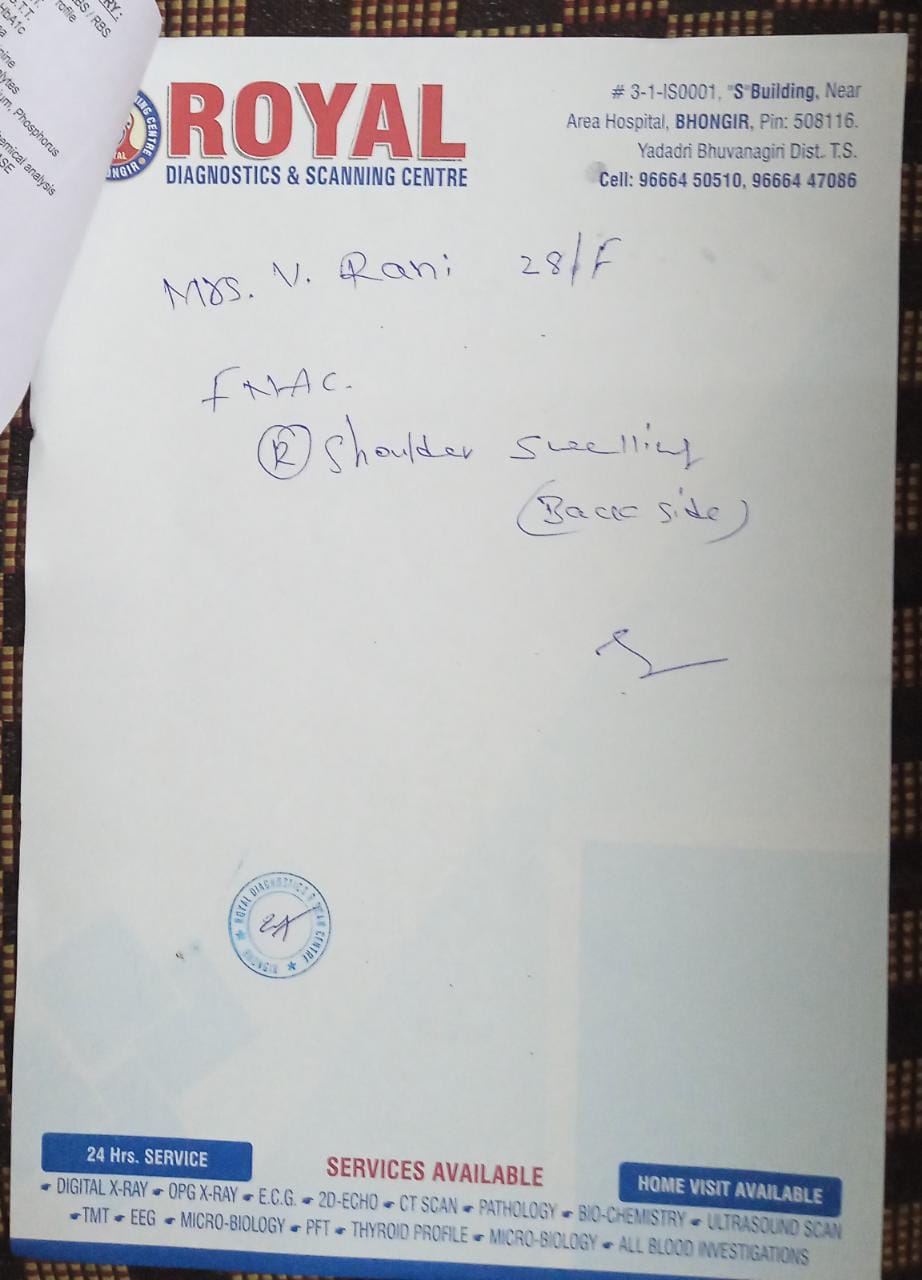 RY.:
BS / RBS
T.T.
rofile
HbA1c
nine
lytes
um, Phosphorus
hemical analysis
ASE
ROYAL
DIAGNOSTICS & SCANNING CENTRE
# 3-1-IS0001, "S"Building, Near
Area Hospital, BHONGIR, Pin: 508116.
Yadadri Bhuvanagiri Dist. T.S.
Cell: 96664 50510, 96664 47086
Mrs. V. Rani 28/F
FNAC.
R Shoulder Swelling
(Back side)
ROYAL DIAGNOSTICS & SCAN CENTRE
24 Hrs. SERVICE
SERVICES AVAILABLE
HOME VISIT AVAILABLE
DIGITAL X-RAY OPG X-RAY E.C.G. 2D-ECHO CT SCAN PATHOLOGY BIO-CHEMISTRY ULTRASOUND SCAN
TMT EEG MICRO-BIOLOGY PFT THYROID PROFILE MICRO-BIOLOGY ALL BLOOD INVESTIGATIONS